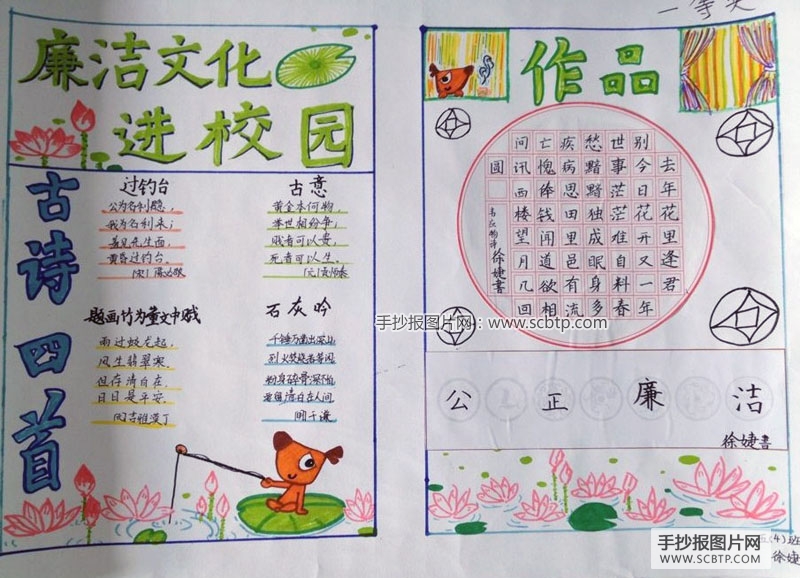 一等奖
廉洁文化
进校园
古诗四首
过钓台
公为名利隐，
我为名利来；
羞见先生面，
黄昏过钓台。
古意
黄金本何物，
举世相纷争；
贱者可以贵，
死者可以生。
题画竹为董文中赋
雨过蛟龙起，
风生翡翠寒。
但存清白在，
日日是平安。
石灰吟
千锤万凿出深山
烈火焚烧若等闲
粉身碎骨浑不怕
要留清白在人间
明于谦
作品
去年花里逢君
别今日花开又一年
世事茫茫难自料春
愁黯黯独成眠身多
疾病思田里邑有流
亡愧俸钱闻道欲相
问讯西楼望月几回
圆
徐婕书
手抄报图片网：www.scbtp.com
公正廉洁
徐婕书
(4)班
徐婕
手抄报图片网
WWW.SCBTP.COM